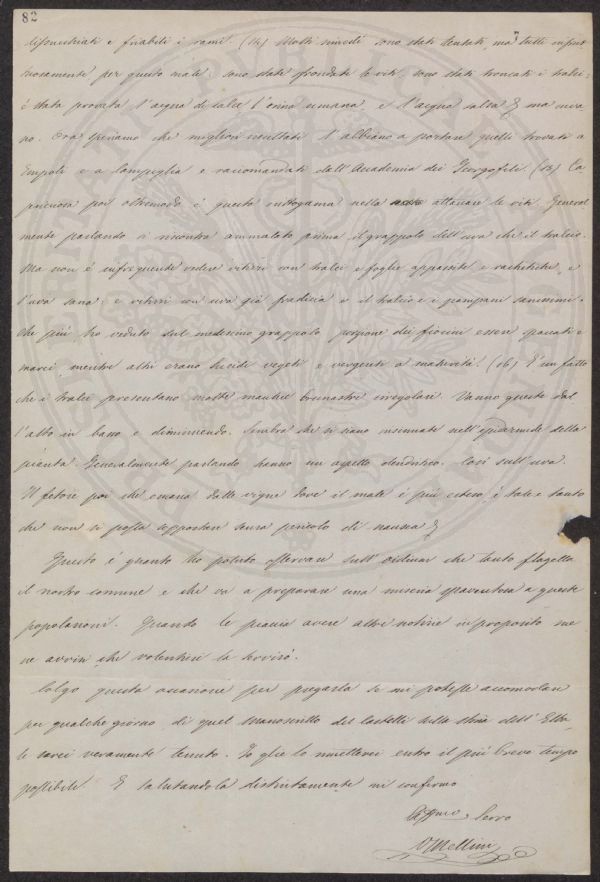 82
disseccati e friabili i rami. (14) Molti rimedi sono stati tentati, ma tutti infrut
tuosamente per questo male: sono state sfrondate le viti, sono stati troncati i tralci:
è stata provata l'acqua di calce l'orina umana, e l'acqua salsa & ma inva
no. Ora speriamo che migliori resultati l'abbiano a portare quelli trovati a
Empoli e a Campiglia e raccomandati dall'Accademia dei Georgofili. (15) Ca
pricciosa poi oltremodo è questa crittogama nella attaccare le viti. General
mente parlando si riscontra ammalato prima il grappolo dell'uva che il tralcio.
Ma non è infrequente vedere vitizzi con tralci e foglie appassite e rachitiche, e
l'uva sana: e vitizzi con uva già fradicia e il tralcio e i pampani sanissimi.
Che più, ho veduto sul medesimo grappolo porzione dei fiocini essere spaccati e
marci, mentre altri erano lucidi vegeti e vergenti a maturità! (16) È un fatto
che i tralci presentano molte macchie brunastre irregolari. Vanno queste dal
l'alto in basso e diminuendo. Sembra che si siano insinuate nell'epidermide della
pianta. Generalmente parlando hanno un aspetto dendritico. Così sull'uva.
Il fetore poi che emana dalle vigne dove il male è più esteso, è tale e tanto
che non si possa sopportare senza pericolo di nausea &
Questo è quanto ho potuto osservare sull'oidium che tanto flagella
il nostro comune e che va a preparare una miseria spaventosa a queste
popolazioni. Quando le piaccia avere altre notizie in proposito me
ne avvisi che volentieri la servirò.
Colgo questa occasione per pregarla se mi potesse accomodare
per qualche giorno di quel Manoscritto del Castelli della storia dell'Elba,
le sarei veramente tenuto. Io glie lo rimetterei entro il più breve tempo
possibile. E salutandola distintamente mi confermo
Affmo Servo
V Mellini